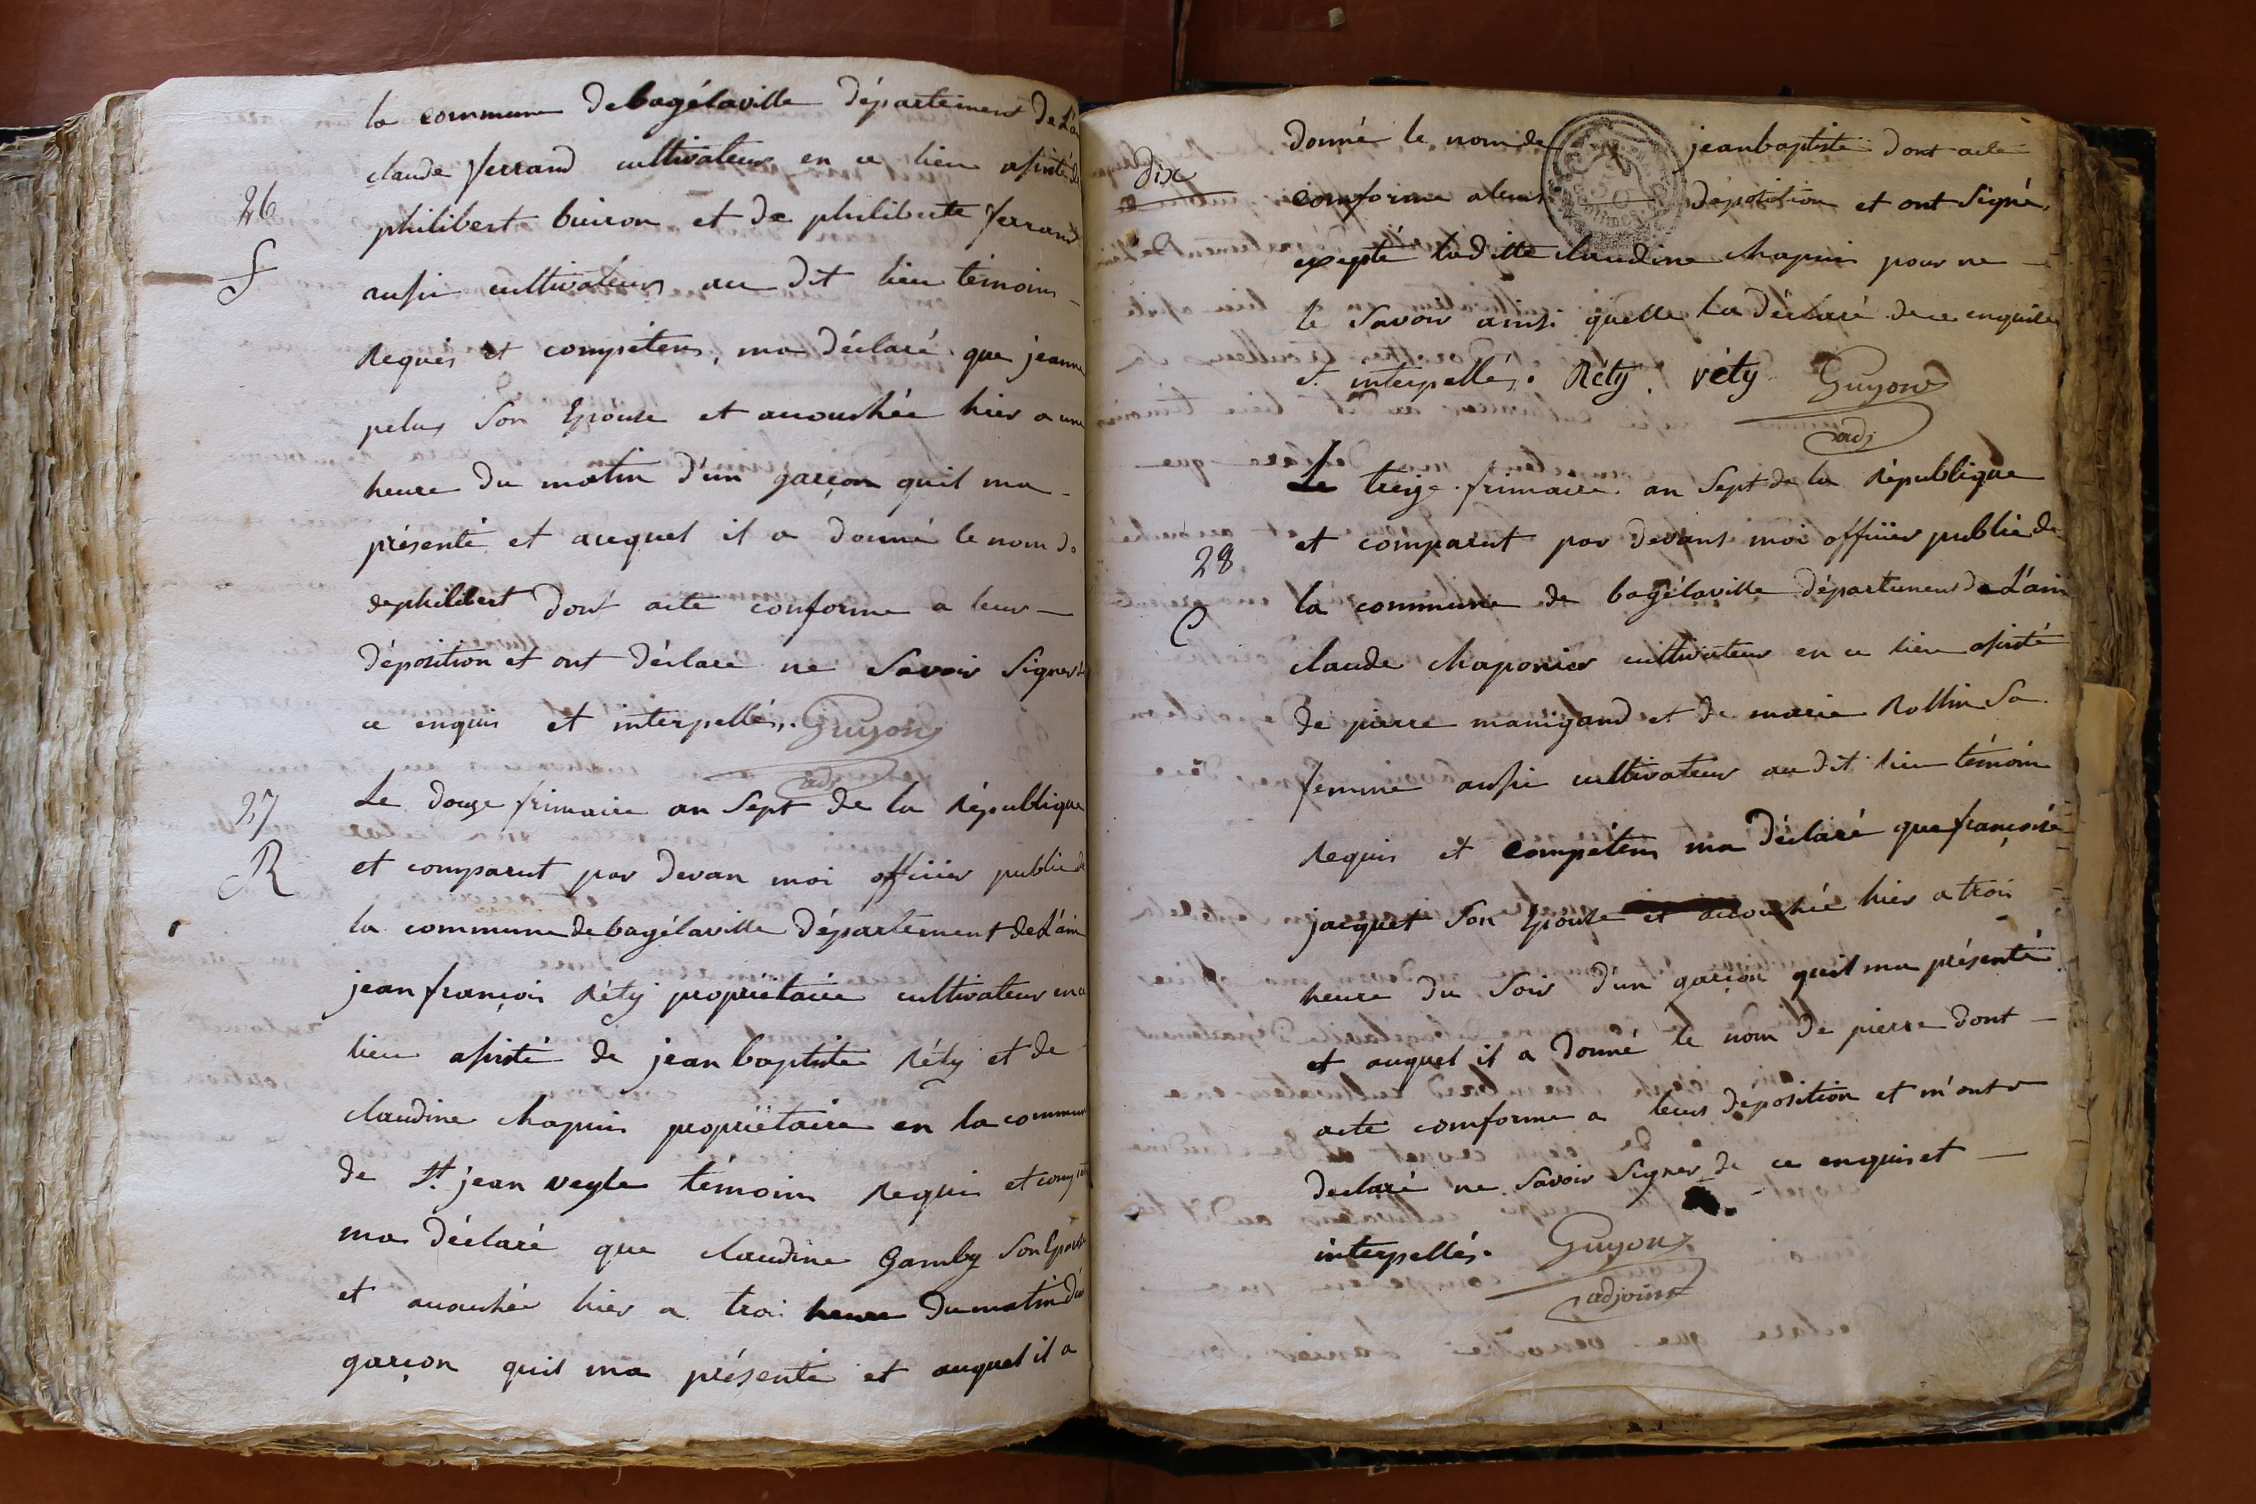 la commune debagélaville département de L'ain
claude ferrand cultivateur en ce lieu assisté de
26
philibert buiron et de philiberte ferrand
f
aussi cultivateurs au dit lieu témoins
Requis et compétens, ma déclaré que jeanne
pelus Son Epouse et accouchée hier a une
heure du matin d'un garçon quil ma
présenté et auquel il a donné le nom de
dephilibert dont acte conforme a leur
déposition et ont déclaré ne Savoir Signer de
ce enquis et interpellés. Guyon
adj
27
Le douze frimaire an Sept de la République
R
et comparut par devan moi officier public de
la commune debagélaville département deL'ain
jean françois Réty propriétaire cultivateur en ce
lieu assisté de jean baptiste Réty et de
claudine chapuis propriétaire en la commune
de St. jean veyle témoins Requis et compétens
ma déclaré que claudine Gamby Son Epouse
et accouchée hier a troi heure du matin d'un
garçon quil ma présenté et auquel il a
dix
donné le nom de jeanbaptiste dont acte
conforme aleurs déposition et ont Signé,
exepté laditte claudine chapuis pour ne
le Savoir ainsi quelle La déclaré de ce enquise
et interpellés. Réty. réty Guyon
adj
Le treize frimaire an Sept de la République
28
et comparut par devant moi officier public de
C
la commune de bagélaville département de L'ain
claude chaponier cultivateur en ce lieu assisté
de pierre manigand et de marie Rollin Sa
femme aussi cultivateur au dit lieu témoin
Requis et compétens ma déclaré que françoise
jacquet Son Epouse et accouchée hier a troi
heure du Soir d'un garçon quil ma présenté
et auquel il a donné le nom de pierre dont
acte comforme a leurs déposition et m'ont
declaré ne Savoir Signer de ce enquis et
interpellés. Guyon
adjoint